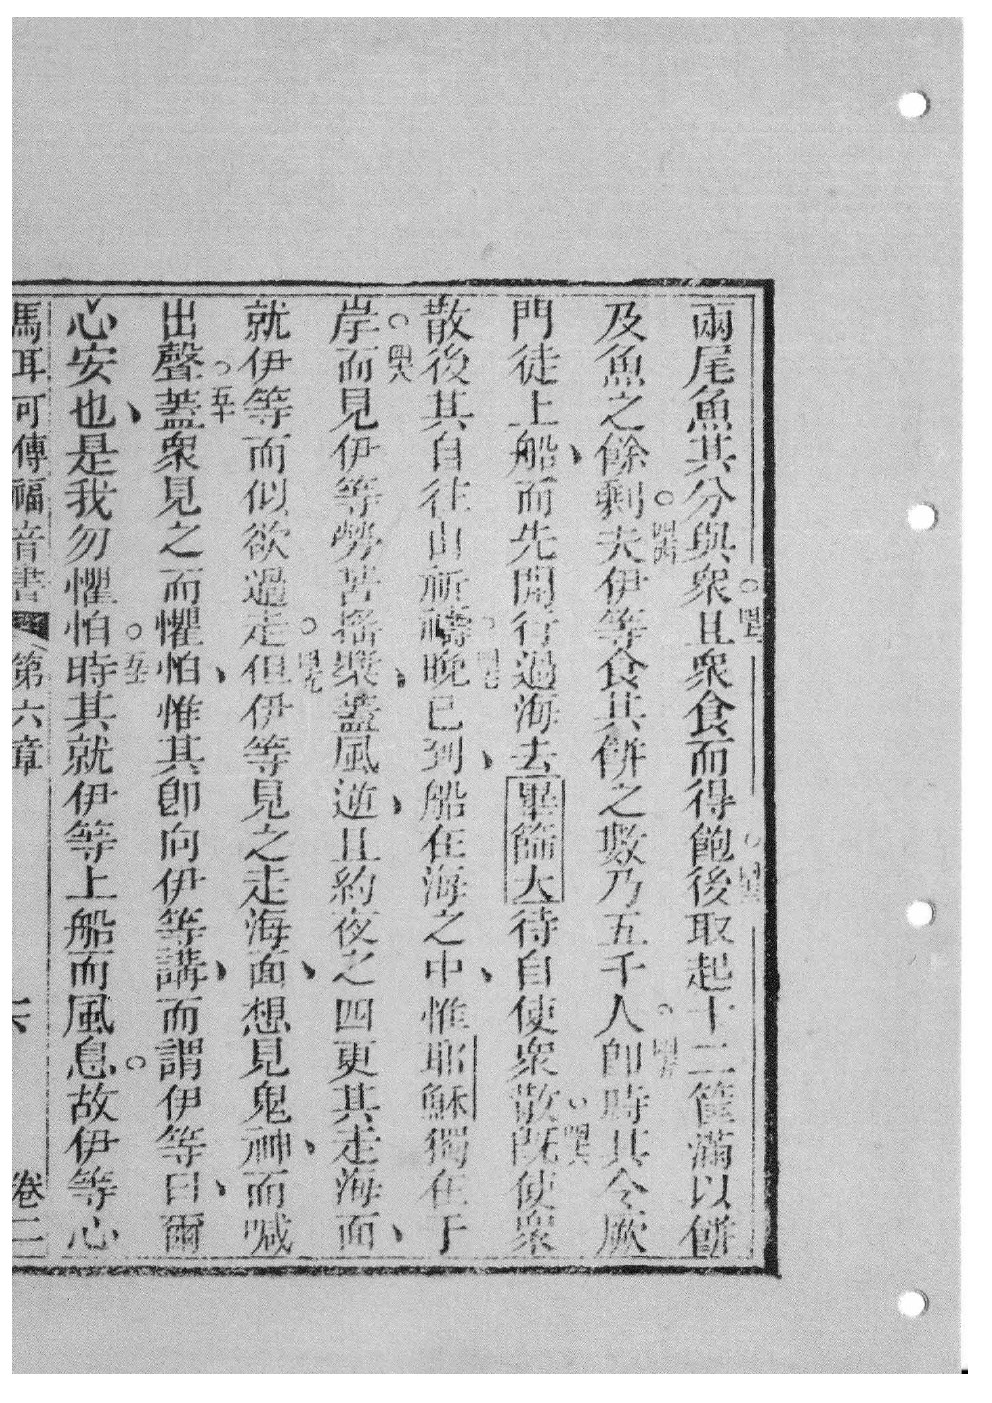 兩尾魚其分與衆○四二且衆食而得飽○四三後取起十二筐滿以餅
及魚之餘剩○四四夫伊等食其餅之數乃五千人○四五卽時其令厥
門徒上船、而先開行過海去畢篩大待自使衆散○四六旣使衆
散後其自往山祈禱○四七晚已到、船在海之中、惟耶穌獨在于
岸○四八而見伊等勞苦搖槳、蓋風逆、且約夜之四更其走海面、
就伊等而似欲過走○四九但伊等見之走海面、想見鬼神、而喊
出聲○五十蓋衆見之而懼怕、惟其卽向伊等講、而謂伊等曰、爾
心安也、是我勿懼怕○五一時其就伊等上船而風息○故伊等心
馬耳可傳福音書 第六章 六 卷二